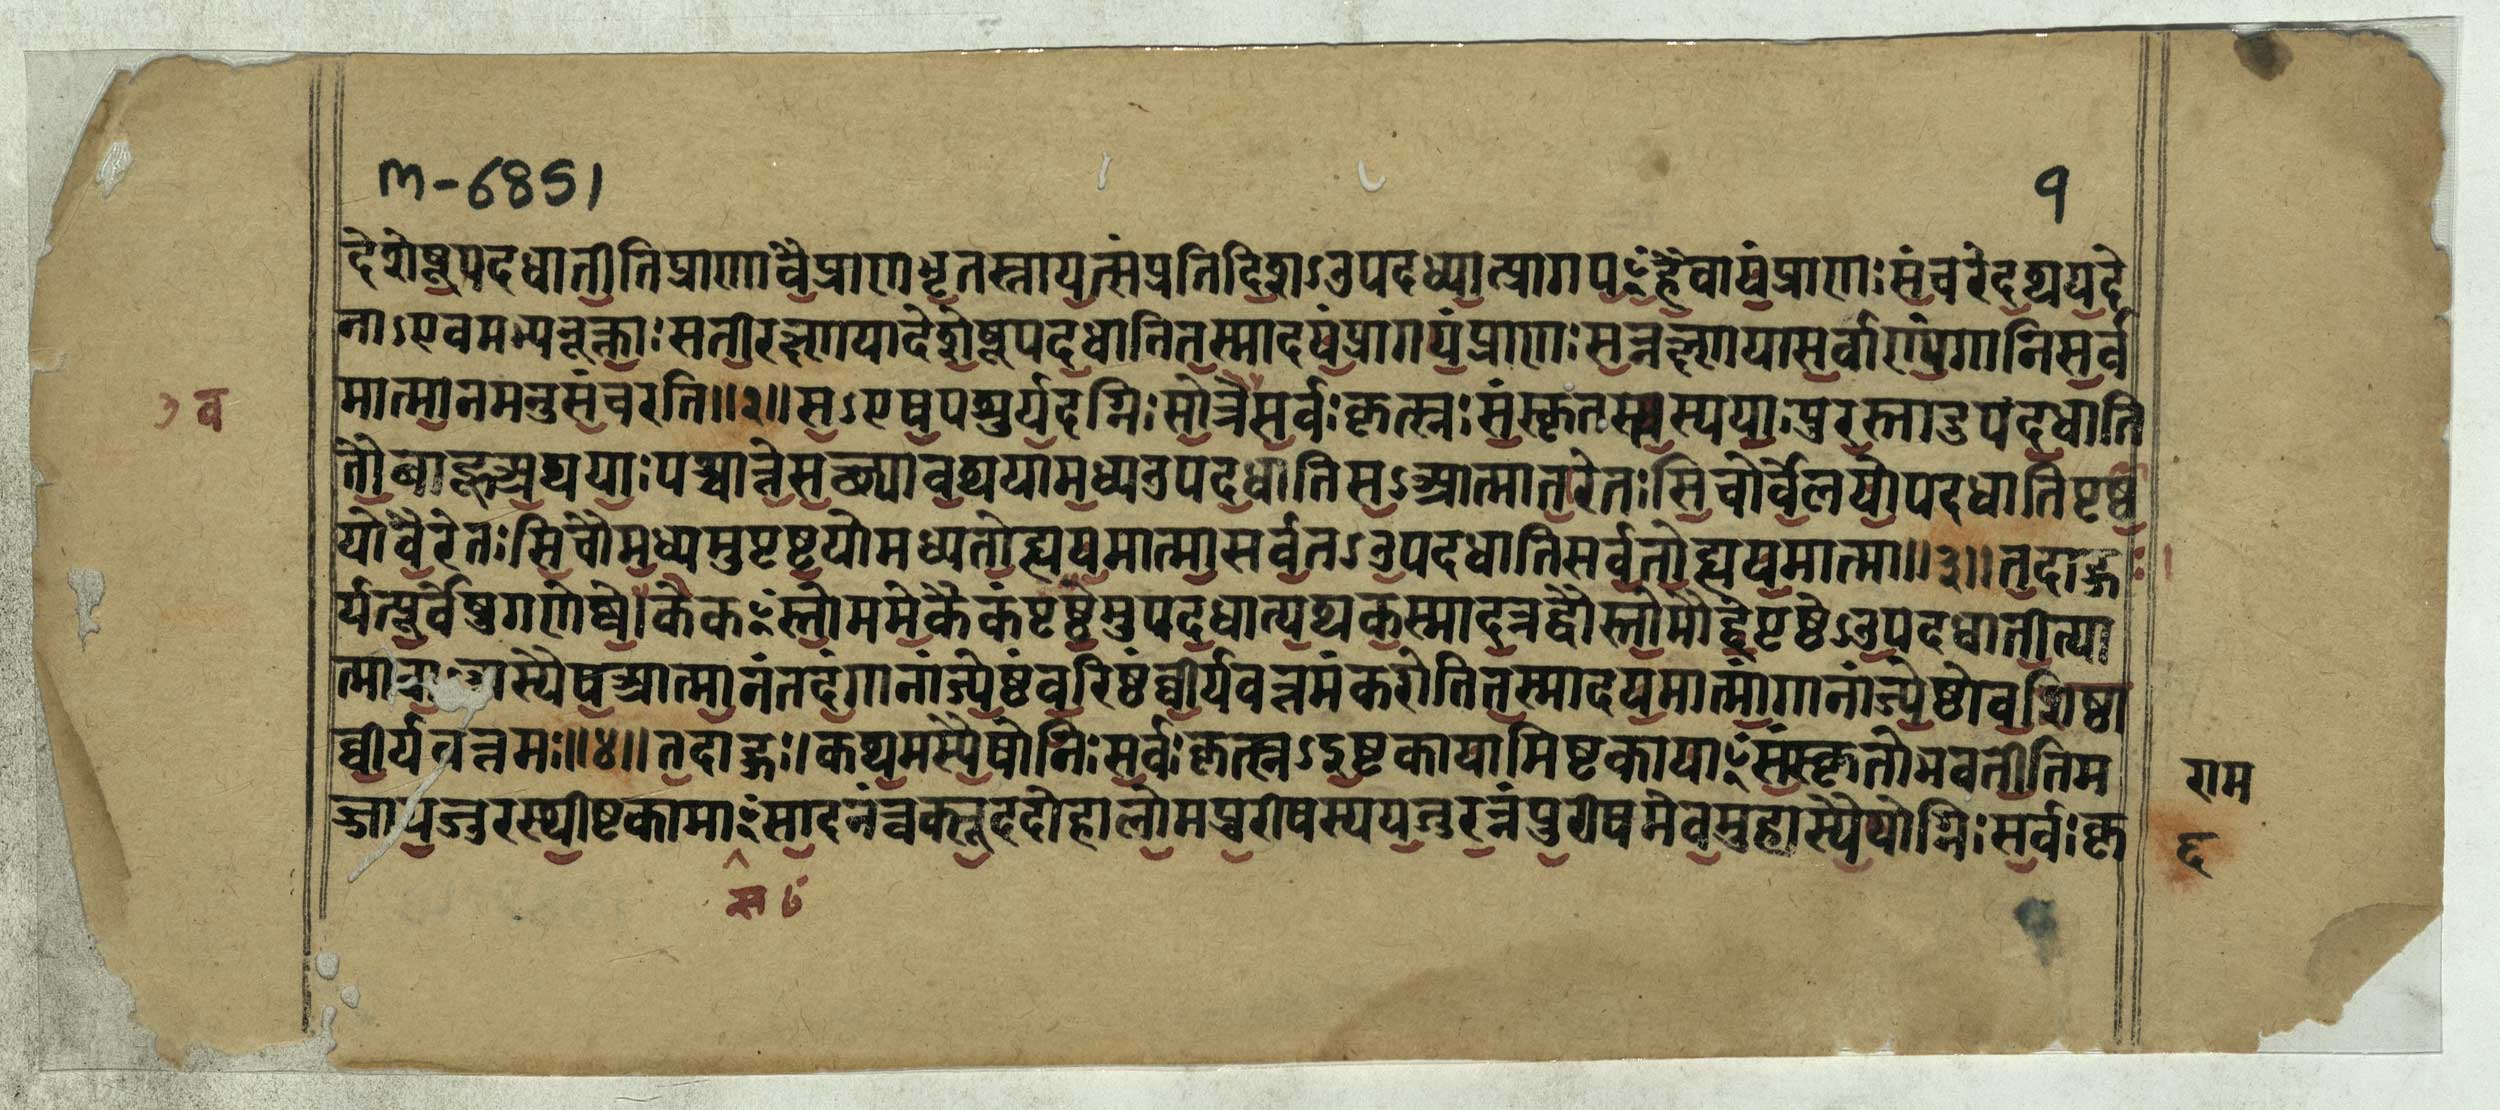 m-6851
१
देशेषूपदधातीतिप्राणावैप्राणभृतस्तायत्संप्रतिदिशऽउपदध्यात्प्रागपꣳहैवायंप्राणःसंचरेदथयदे
नाऽएवमभ्यनूक्ताःसतीरक्ष्णयादेशेषूपदधातितस्मादयंप्रागयंप्राणःसन्नक्ष्णयासर्वाण्यंगानिसर्व
मात्मानमनुसंचरति॥२॥सऽएषपशुर्यदग्निःसोत्रैसर्वःकृत्स्नःसंस्कृतस्तस्ययाःपुरस्तादुपदधाति
तौबाहूअथयाःपश्चात्तेसक्थ्यावथयामध्यउपदधातिसऽआत्मातारेतःसिचोर्वेलयोपदधातिपृष्ट
योवैरेतःसिचौमध्यमुपृष्टयोमध्यतोह्ययमात्मासर्वतऽउपदधातिसर्वतोह्ययमात्मा॥३॥तदाहुः
र्यत्पूर्वेषुगणेष्वेकैकꣳस्तोममेकैकंपृष्ठमुपदधात्यथकस्मादत्रद्वौस्तोमौद्वेपृष्ठेऽउपदधातीत्या
त्मावाअस्यैषआत्मानंतदंगानांज्येष्ठंवरिष्ठंवीर्यवत्तमंकरोतितस्मादयमात्मांगानांज्येष्ठोवरिष्ठा
वीर्यवत्तमः॥४॥तदाहुः।कथमस्यैषोनिःसर्वःकृत्स्नऽइष्टकायामिष्टकायाꣳसंस्कृतोभवतीतिम
ज्जायजुरस्थीष्टकामाꣳसादनंत्वक्सूददोहालोमपुरीषस्ययजुरन्नंपुरीषमेवमुहास्यैषोग्निःसर्वःकृ
व
राम
६